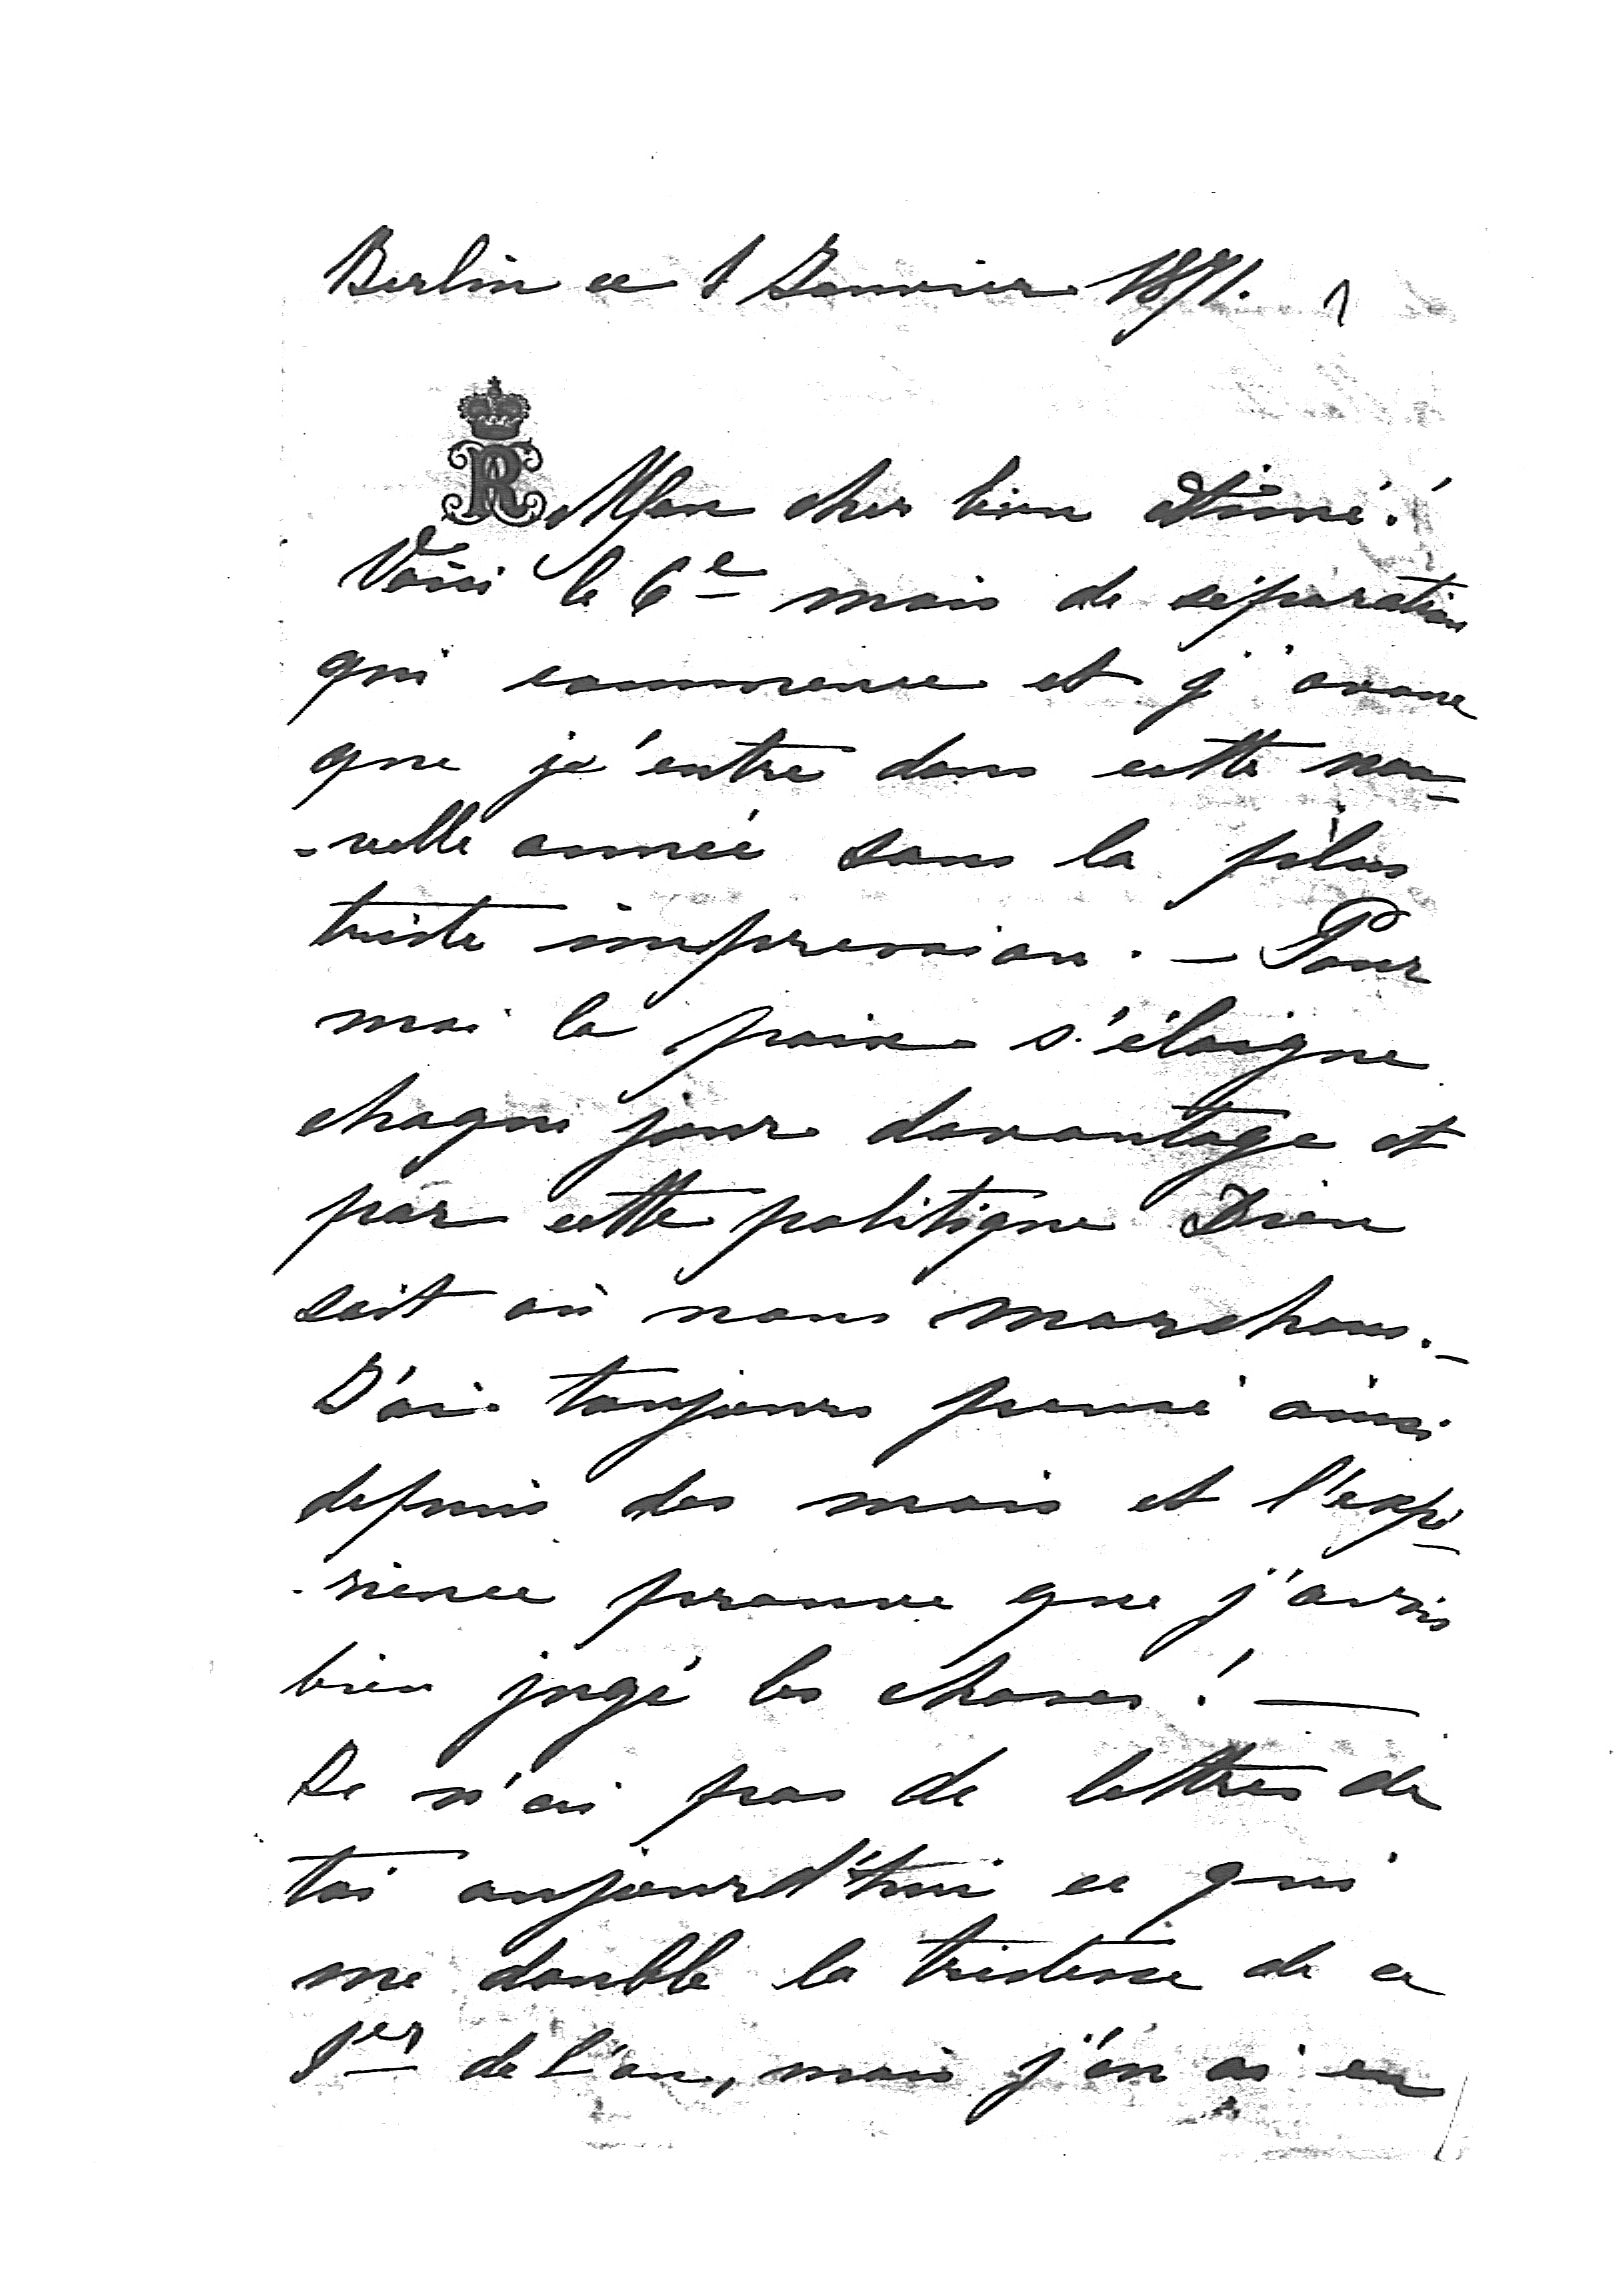 Berlin ce 1 Janvier 1871.
R Mon cher bien Aimé!
Voici le 6e mois de séparation
qui commence et j'avoue
que j'entre dans cette nou-
-velle année sous la plus
triste impression. – Pour
moi la paix s'éloigne
chaque jour davantage et
par cette politique Dieu
sait où nous marchons. –
J'ai toujours pensé ainsi
depuis des mois et l'expé-
-rience prouve que j'avais
bien jugé les choses! —
Je n'ai pas de lettres de
toi aujourd'hui ce qui
me double la tristesse de ce
1er de l'an, mais j'en ai eu